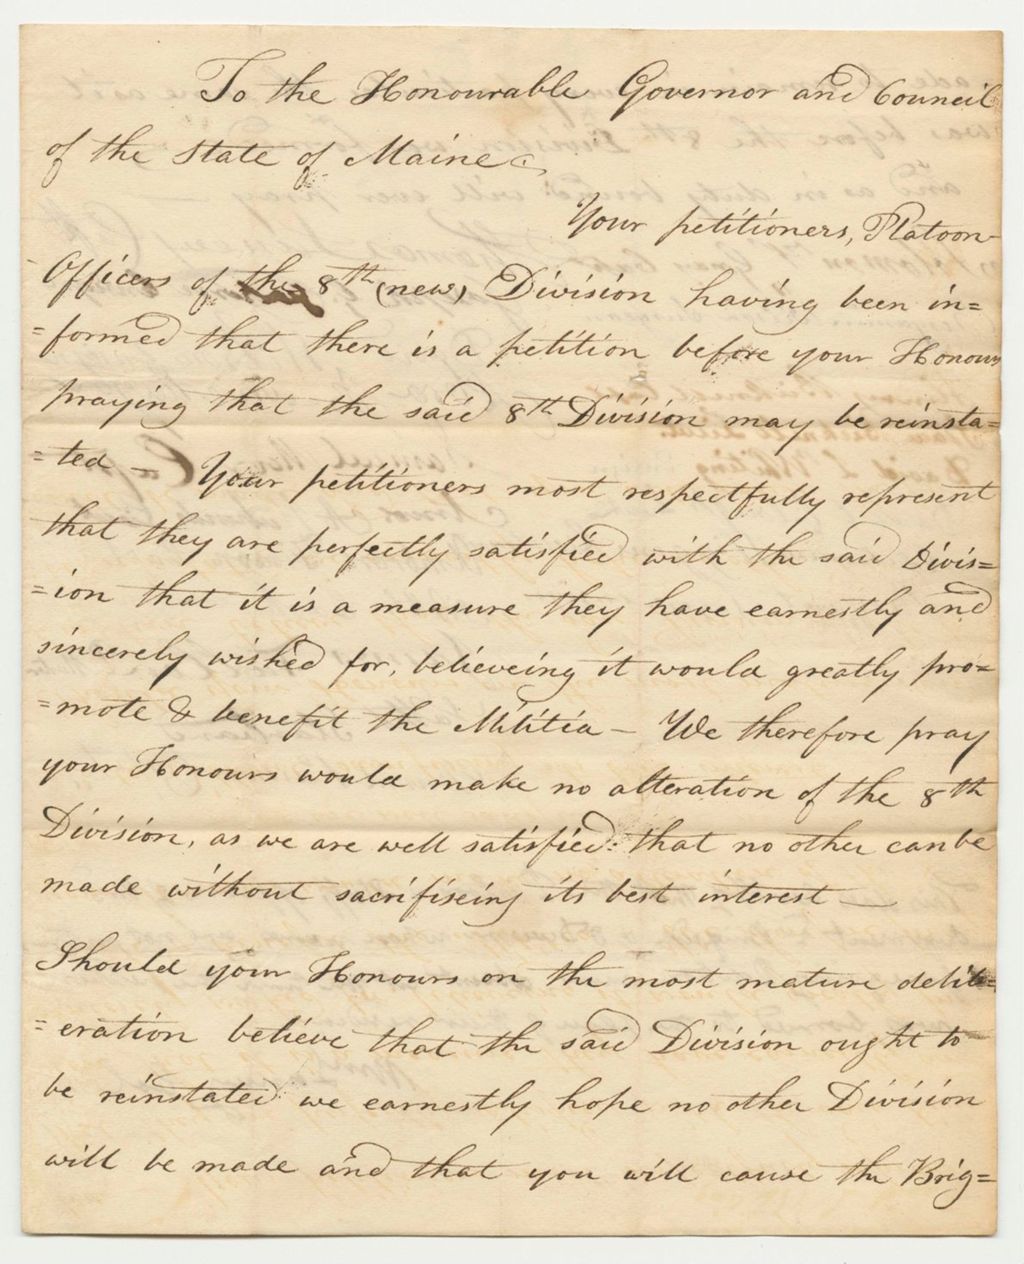 To the Honourable Governor and Council
of the State of Maine
Your petitioners, Platoon
Officers of the 8th (new) Division having been in=
=formed that there is a petition before your Honours
praying that the said 8th Division may be reinsta=
=ted — Your petitioners most respectfully represent
that they are perfectly satisfied with the said Divis=
=ion that it is a measure they have earnestly and
sincerely wished for, believeing it would greatly pro=
=mote & benefit the Militia — We therefore pray
your Honours would make no alteration of the 8th
Division, as we are well satisfied that no other can be
made without sacrifiseing its best interest —
Should your Honours on the most mature delib=
=eration believe that the said Division ought to
be reinstated we earnestly hope no other Division
will be made and that you will cause the Brig=